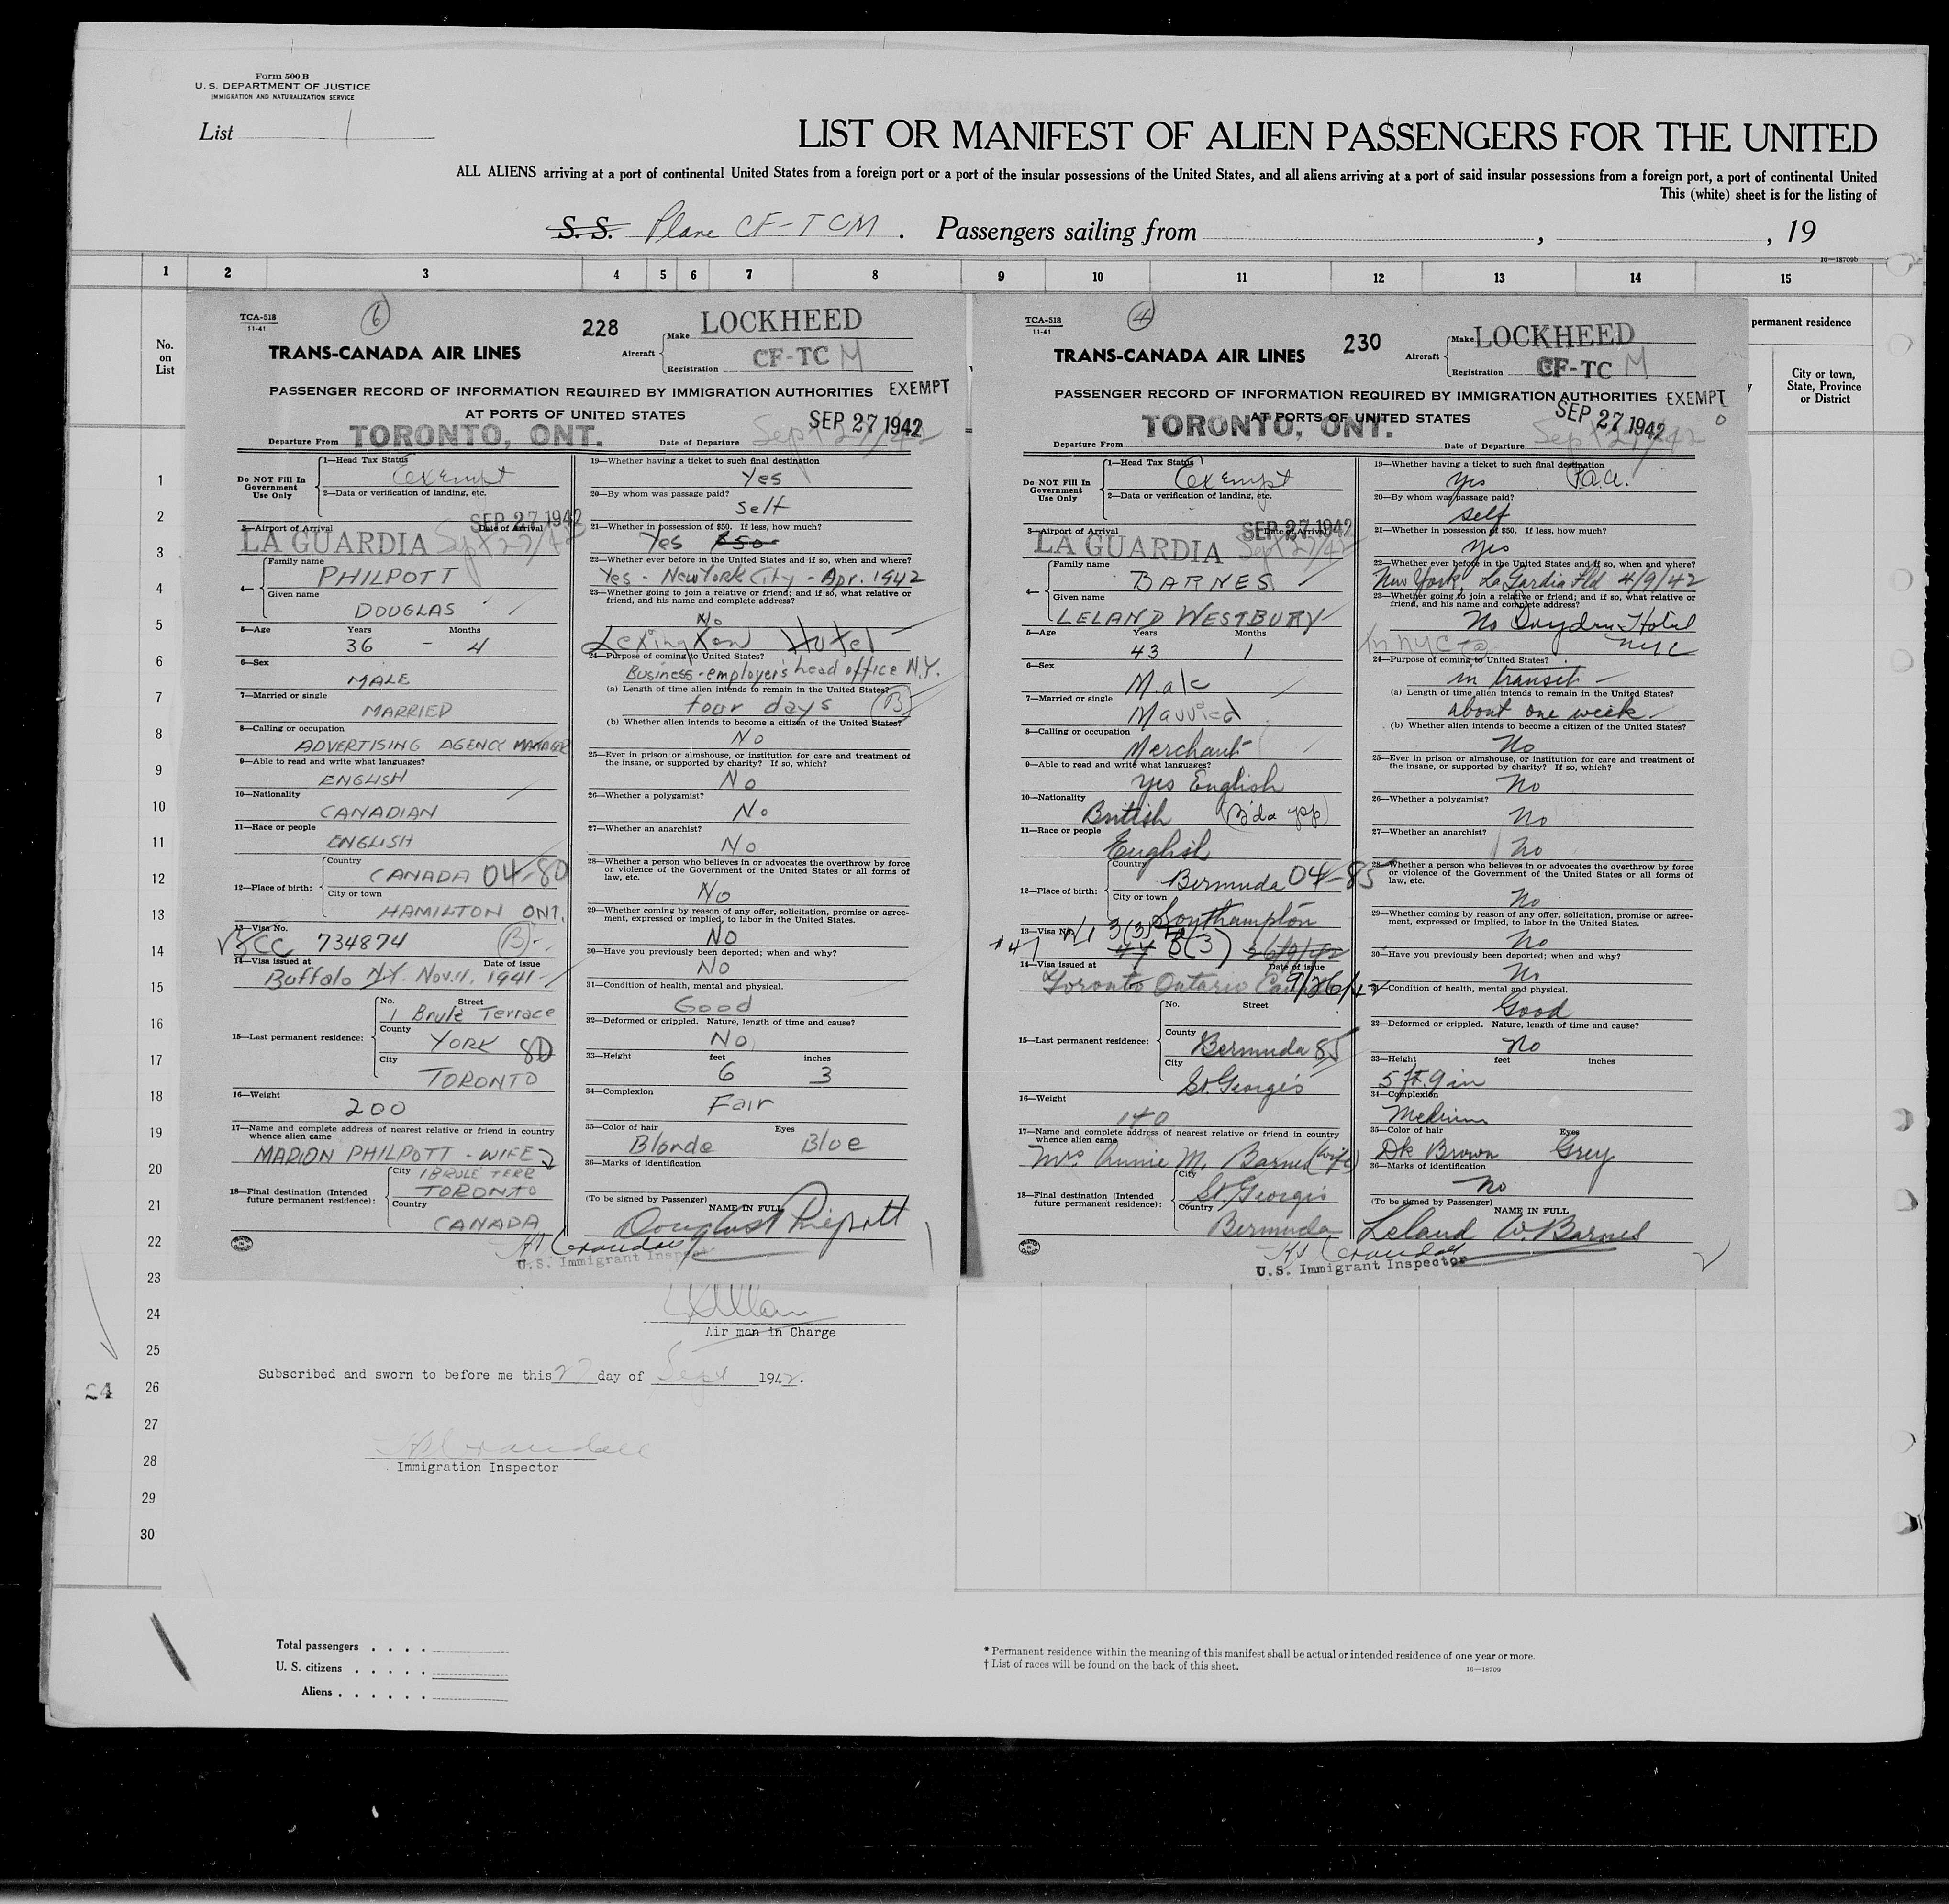 Form 500 B
U. S. DEPARTMENT OF JUSTICE
IMMIGRATION AND NATURALIZATION SERVICE
List 1
LIST OR MANIFEST OF ALIEN PASSENGERS FOR THE UNITED
ALL ALIENS arriving at a port of continental United States from a foreign port or a port of the insular possessions of the United States, and all aliens arriving at a port of said insular possessions from a foreign port, a port of continental United
This (white) sheet is for the listing of
S. S. Plane CF-TCM. Passengers sailing from , , 19
16—18709b
1 2 3 4 5 6 7 8 9 10 11 12 13 14 15
No. on List
permanent residence
City or town, State, Province or District
TCA-518
11-41
6
228
Make LOCKHEED
Aircraft
Registration CF-TC M
TRANS-CANADA AIR LINES
PASSENGER RECORD OF INFORMATION REQUIRED BY IMMIGRATION AUTHORITIES EXEMPT
AT PORTS OF UNITED STATES
SEP 27 1942
Departure From TORONTO, ONT. Date of Departure Sept 27/42
Do NOT Fill In Government Use Only
1—Head Tax Status
Exempt
2—Data or verification of landing, etc.
SEP 27 1942
3—Airport of Arrival Date of Arrival
LA GUARDIA Sept 27/42
4— Family name
PHILPOTT
Given name
DOUGLAS
5—Age Years Months
36 - 4
6—Sex
MALE
7—Married or single
MARRIED
8—Calling or occupation
ADVERTISING AGENCY MANAGER
9—Able to read and write what languages?
ENGLISH
10—Nationality
CANADIAN
11—Race or people
ENGLISH
12—Place of birth: Country
CANADA 04-80
City or town
HAMILTON ONT.
13—Visa No.
BCC 734874 B
14—Visa issued at Date of issue
Buffalo N.Y. Nov. 11, 1941
15—Last permanent residence: No. Street
1 Brulé Terrace
County
YORK 80
City
TORONTO
16—Weight
200
17—Name and complete address of nearest relative or friend in country whence alien came
MARION PHILPOTT - WIFE
18—Final destination (Intended future permanent residence): City
1 BRULÉ TERR
TORONTO
Country
CANADA
19—Whether having a ticket to such final destination
Yes
20—By whom was passage paid?
Self
21—Whether in possession of $50. If less, how much?
Yes $50
22—Whether ever before in the United States and if so, when and where?
Yes - New York City - Apr. 1942
23—Whether going to join a relative or friend; and if so, what relative or friend, and his name and complete address?
No
Lexington Hotel
24—Purpose of coming to United States?
Business - employer's head office N.Y.
(a) Length of time alien intends to remain in the United States?
four days B
(b) Whether alien intends to become a citizen of the United States?
No
25—Ever in prison or almshouse, or institution for care and treatment of the insane, or supported by charity? If so, which?
No
26—Whether a polygamist?
No
27—Whether an anarchist?
No
28—Whether a person who believes in or advocates the overthrow by force or violence of the Government of the United States or all forms of law, etc.
No
29—Whether coming by reason of any offer, solicitation, promise or agreement, expressed or implied, to labor in the United States.
No
30—Have you previously been deported; when and why?
No
31—Condition of health, mental and physical.
Good
32—Deformed or crippled. Nature, length of time and cause?
No
33—Height feet inches
6 3
34—Complexion
Fair
35—Color of hair Eyes
Blonde Blue
36—Marks of identification
(To be signed by Passenger) NAME IN FULL
Douglas Philpott
U.S. Immigrant Inspector
TCA-518
11-41
4
230
Make LOCKHEED
Aircraft
Registration CF-TC M
TRANS-CANADA AIR LINES
PASSENGER RECORD OF INFORMATION REQUIRED BY IMMIGRATION AUTHORITIES EXEMPT
AT PORTS OF UNITED STATES
SEP 27 1942
Departure From TORONTO, ONT. Date of Departure Sept 27/42
Do NOT Fill In Government Use Only
1—Head Tax Status
Exempt
2—Data or verification of landing, etc.
SEP 27 1942
3—Airport of Arrival Date of Arrival
LA GUARDIA Sept 27/42
4— Family name
BARNES
Given name
LELAND WESTBURY
5—Age Years Months
43 1
6—Sex
Male
7—Married or single
Married
8—Calling or occupation
Merchant
9—Able to read and write what languages?
yes English
10—Nationality
British (B'da
11—Race or people
English
12—Place of birth: Country
Bermuda 04-85
City or town
Southampton
13—Visa No.
3(3)
14—Visa issued at Date of issue
Toronto Ontario Canada 9/26/42
15—Last permanent residence: No. Street
County
Bermuda 85
City
St. Georges
16—Weight
140
17—Name and complete address of nearest relative or friend in country whence alien came
Mrs Annie M. Barnes (wife)
18—Final destination (Intended future permanent residence): City
St Georges
Country
Bermuda
19—Whether having a ticket to such final destination
yes P.a.a.
20—By whom was passage paid?
self
21—Whether in possession of $50. If less, how much?
yes
22—Whether ever before in the United States and if so, when and where?
New York, La Gardia Fld 4/9/42
23—Whether going to join a relative or friend; and if so, what relative or friend, and his name and complete address?
No Hotel
NYC
24—Purpose of coming to United States?
in transit
(a) Length of time alien intends to remain in the United States?
about one week
(b) Whether alien intends to become a citizen of the United States?
No
25—Ever in prison or almshouse, or institution for care and treatment of the insane, or supported by charity? If so, which?
No
26—Whether a polygamist?
No
27—Whether an anarchist?
No
28—Whether a person who believes in or advocates the overthrow by force or violence of the Government of the United States or all forms of law, etc.
No
29—Whether coming by reason of any offer, solicitation, promise or agreement, expressed or implied, to labor in the United States.
No
30—Have you previously been deported; when and why?
No
31—Condition of health, mental and physical.
Good
32—Deformed or crippled. Nature, length of time and cause?
No
33—Height feet inches
5 ft. 9 in
34—Complexion
Medium
35—Color of hair Eyes
Dk Brown Grey
36—Marks of identification
No
(To be signed by Passenger) NAME IN FULL
Leland W. Barnes
U.S. Immigrant Inspector
1
2
3
4
5
6
7
8
9
10
11
12
13
14
15
16
17
18
19
20
21
22
23
24
25
26
27
28
29
30
24
Air man in Charge
Subscribed and sworn to before me this 27 day of Sept 1942.
Immigration Inspector
Total passengers
U. S. citizens
Aliens
* Permanent residence within the meaning of this manifest shall be actual or intended residence of one year or more.
† List of races will be found on the back of this sheet.
16—18709